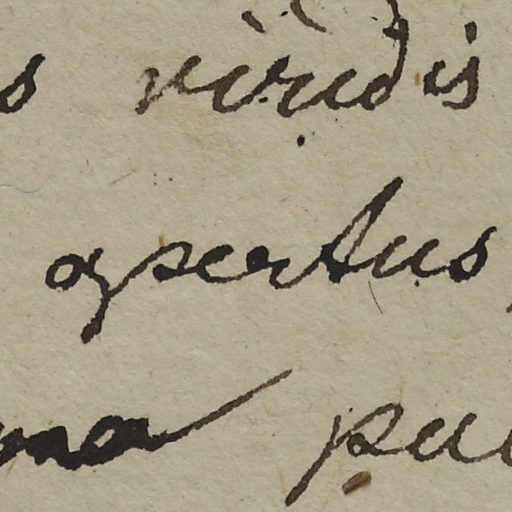 s viridis
opertus,
ma pu